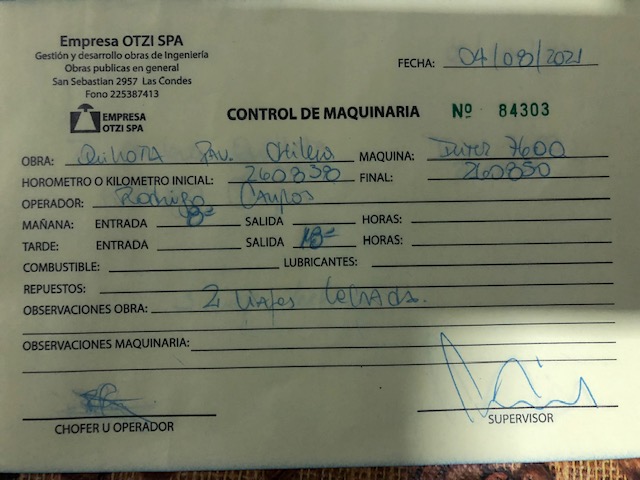 Empresa OTZI SPA
Gestión y desarrollo obras de Ingeniería
Obras publicas en general
San Sebastian 2957 Las Condes
Fono 225387413
FECHA: 04/09/2021
EMPRESA
OTZI SPA
CONTROL DE MAQUINARIA Nº 84303
OBRA: Quillota Pav. Chileno MAQUINA: Inter 7600
HOROMETRO O KILOMETRO INICIAL: 260838 FINAL: 260850
OPERADOR: Rodrigo Campos
MAÑANA: ENTRADA 8= SALIDA HORAS:
TARDE: ENTRADA SALIDA 18= HORAS:
COMBUSTIBLE: LUBRICANTES:
REPUESTOS:
OBSERVACIONES OBRA: 2 Viajes
OBSERVACIONES MAQUINARIA:
CHOFER U OPERADOR SUPERVISOR